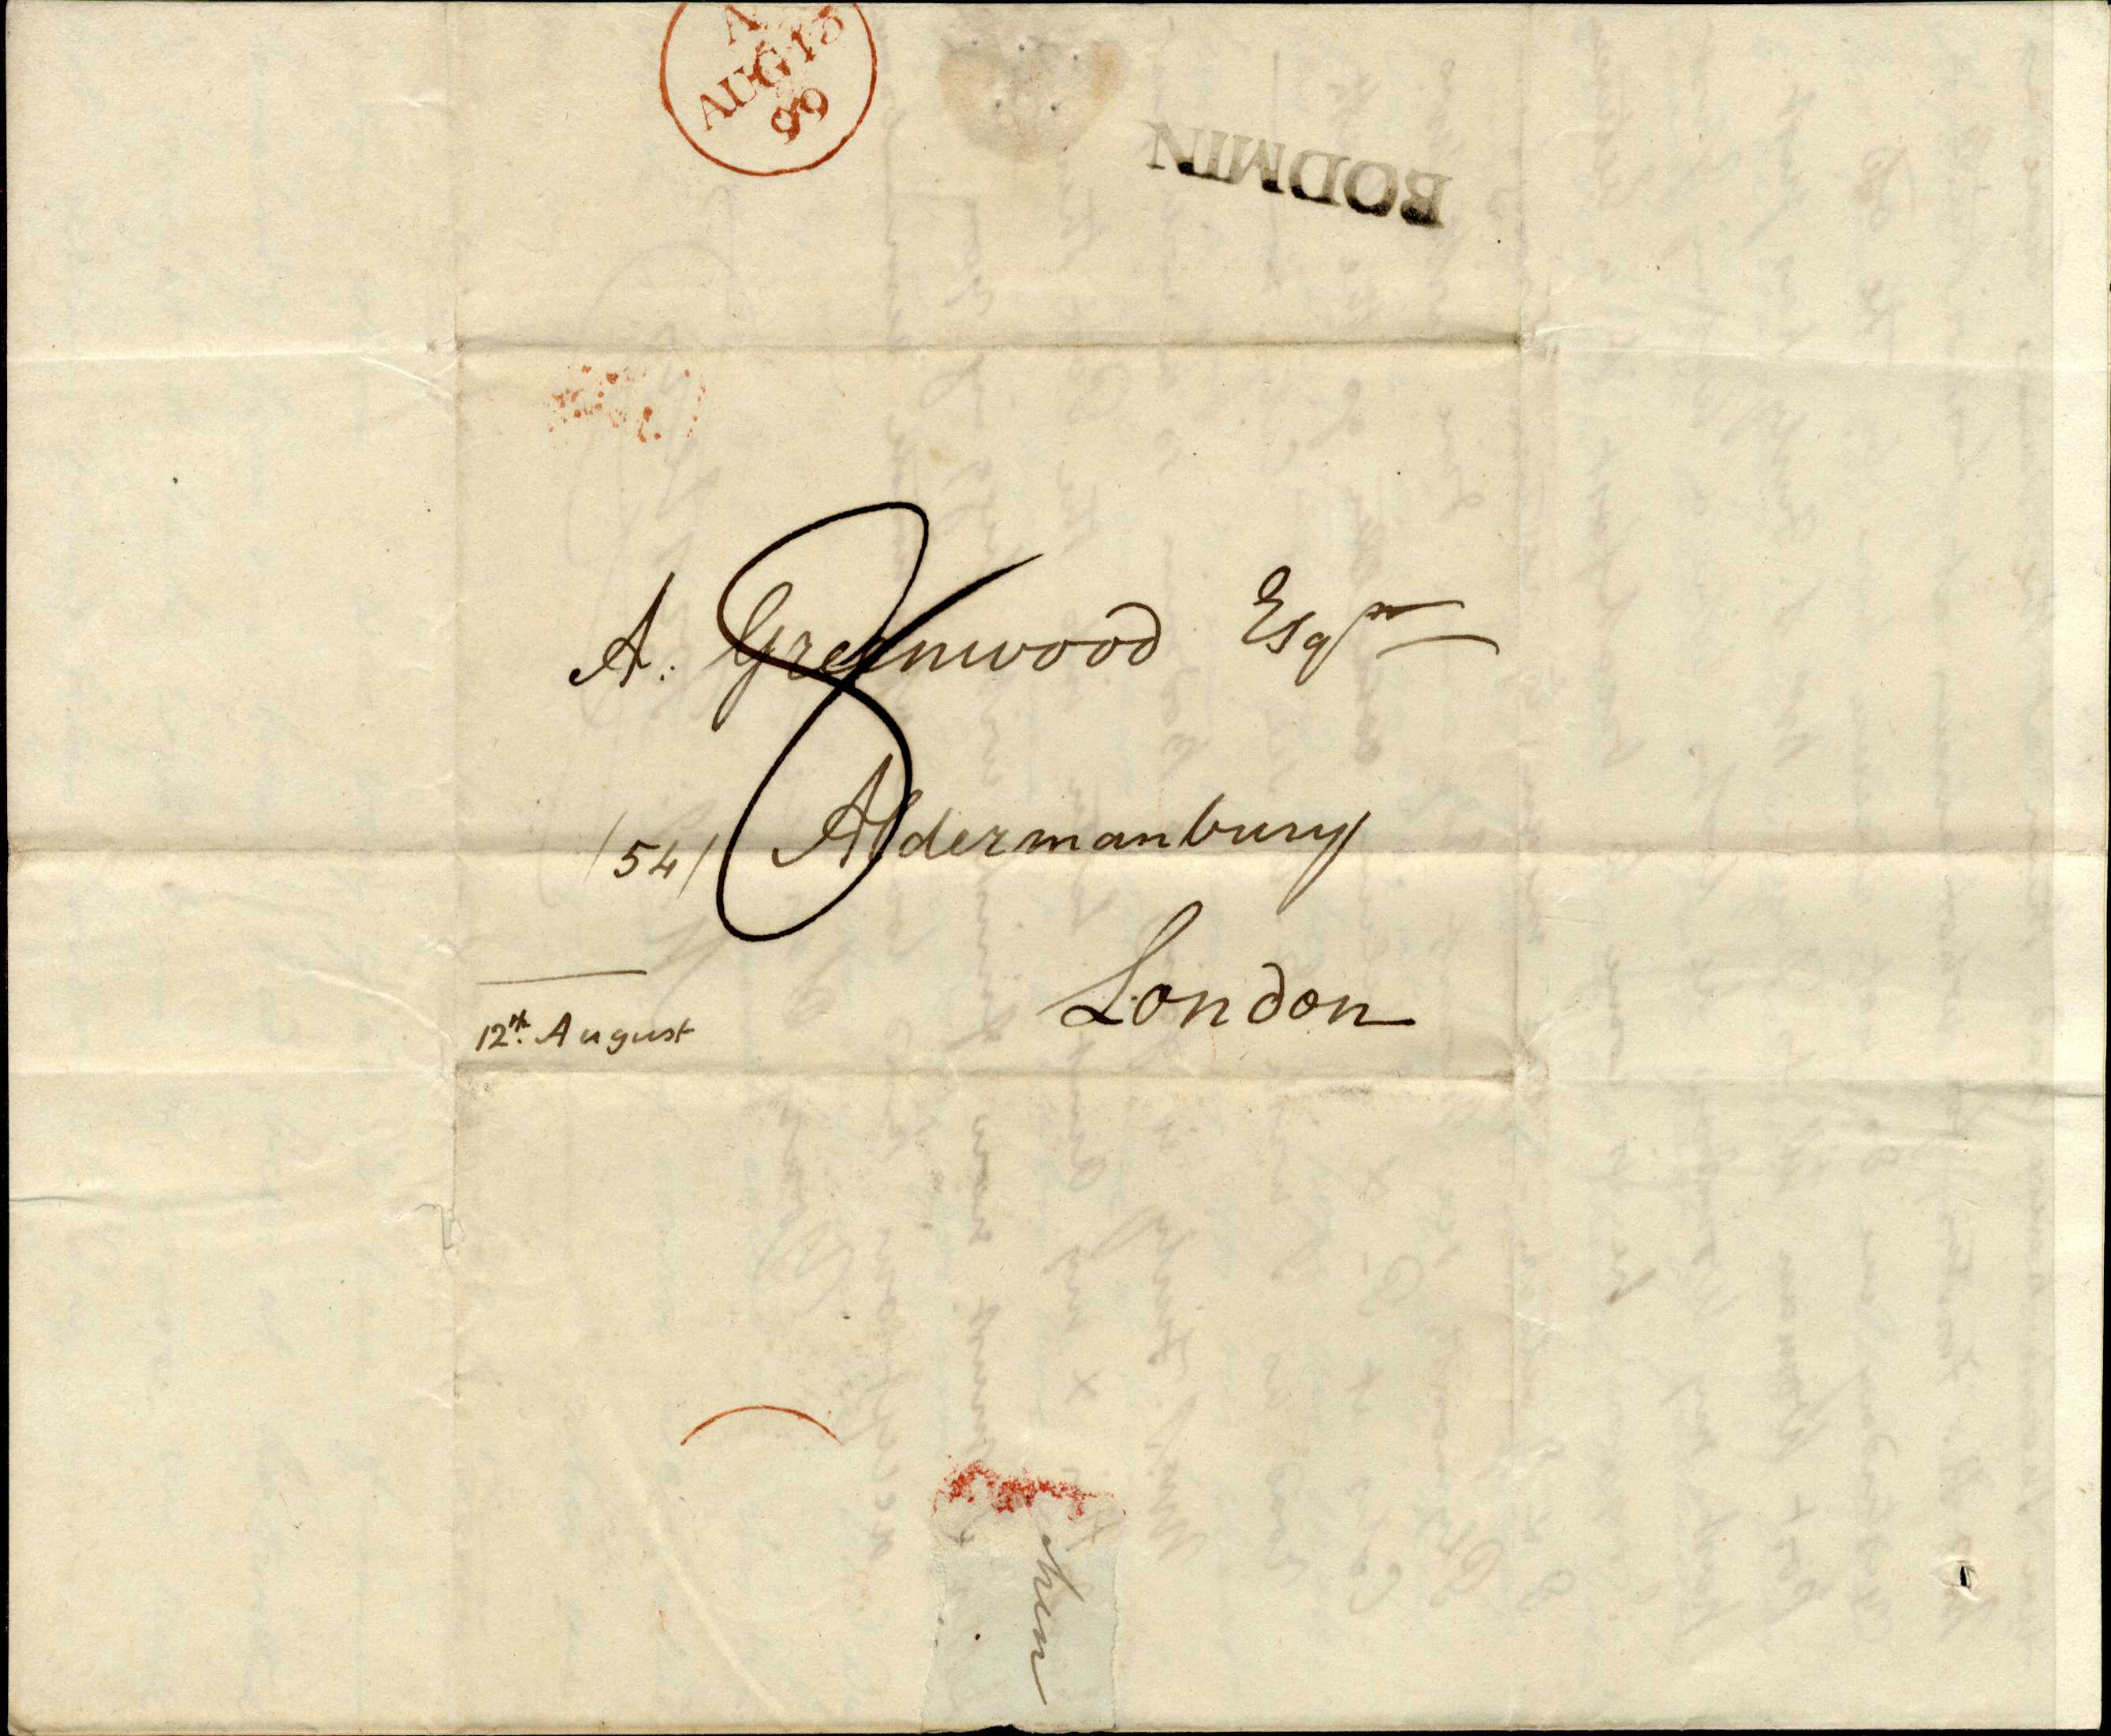 A
AUG 13
99
BODMIN
A. Greenwood Esqr
8
/54/ Aldermanbury
London
12th. August